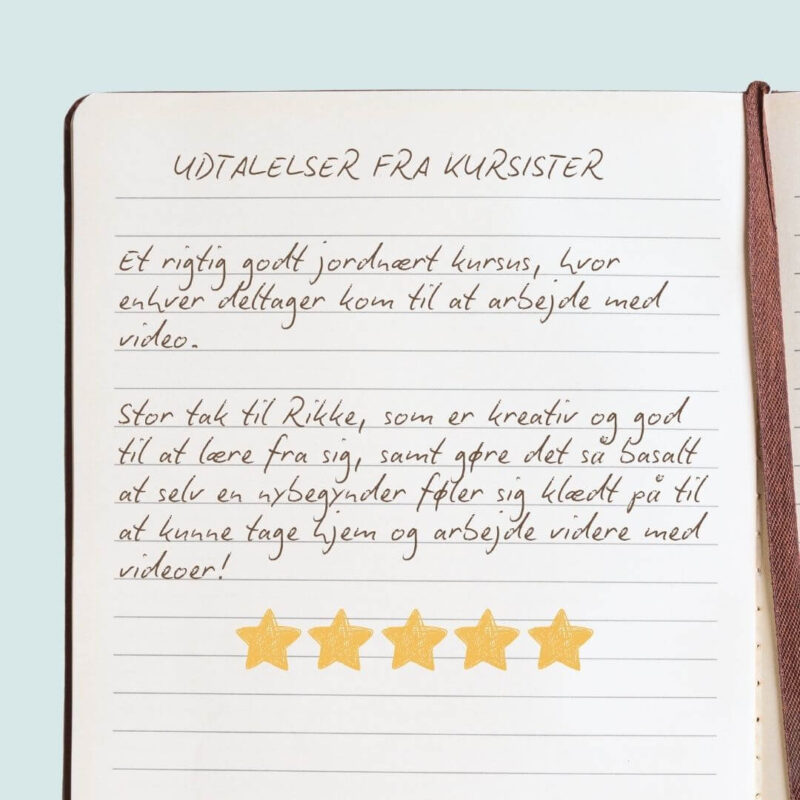 UDTALELSER FRA KURSISTER
Et rigtig godt jordnært kursus, hvor
enhver deltager kom til at arbejde med
video.
Stor tak til Rikke, som er kreativ og god
til at lære fra sig, samt gøre det så basalt
at selv en nybegynder føler sig klædt på til
at kunne tage hjem og arbejde videre med
videoer!